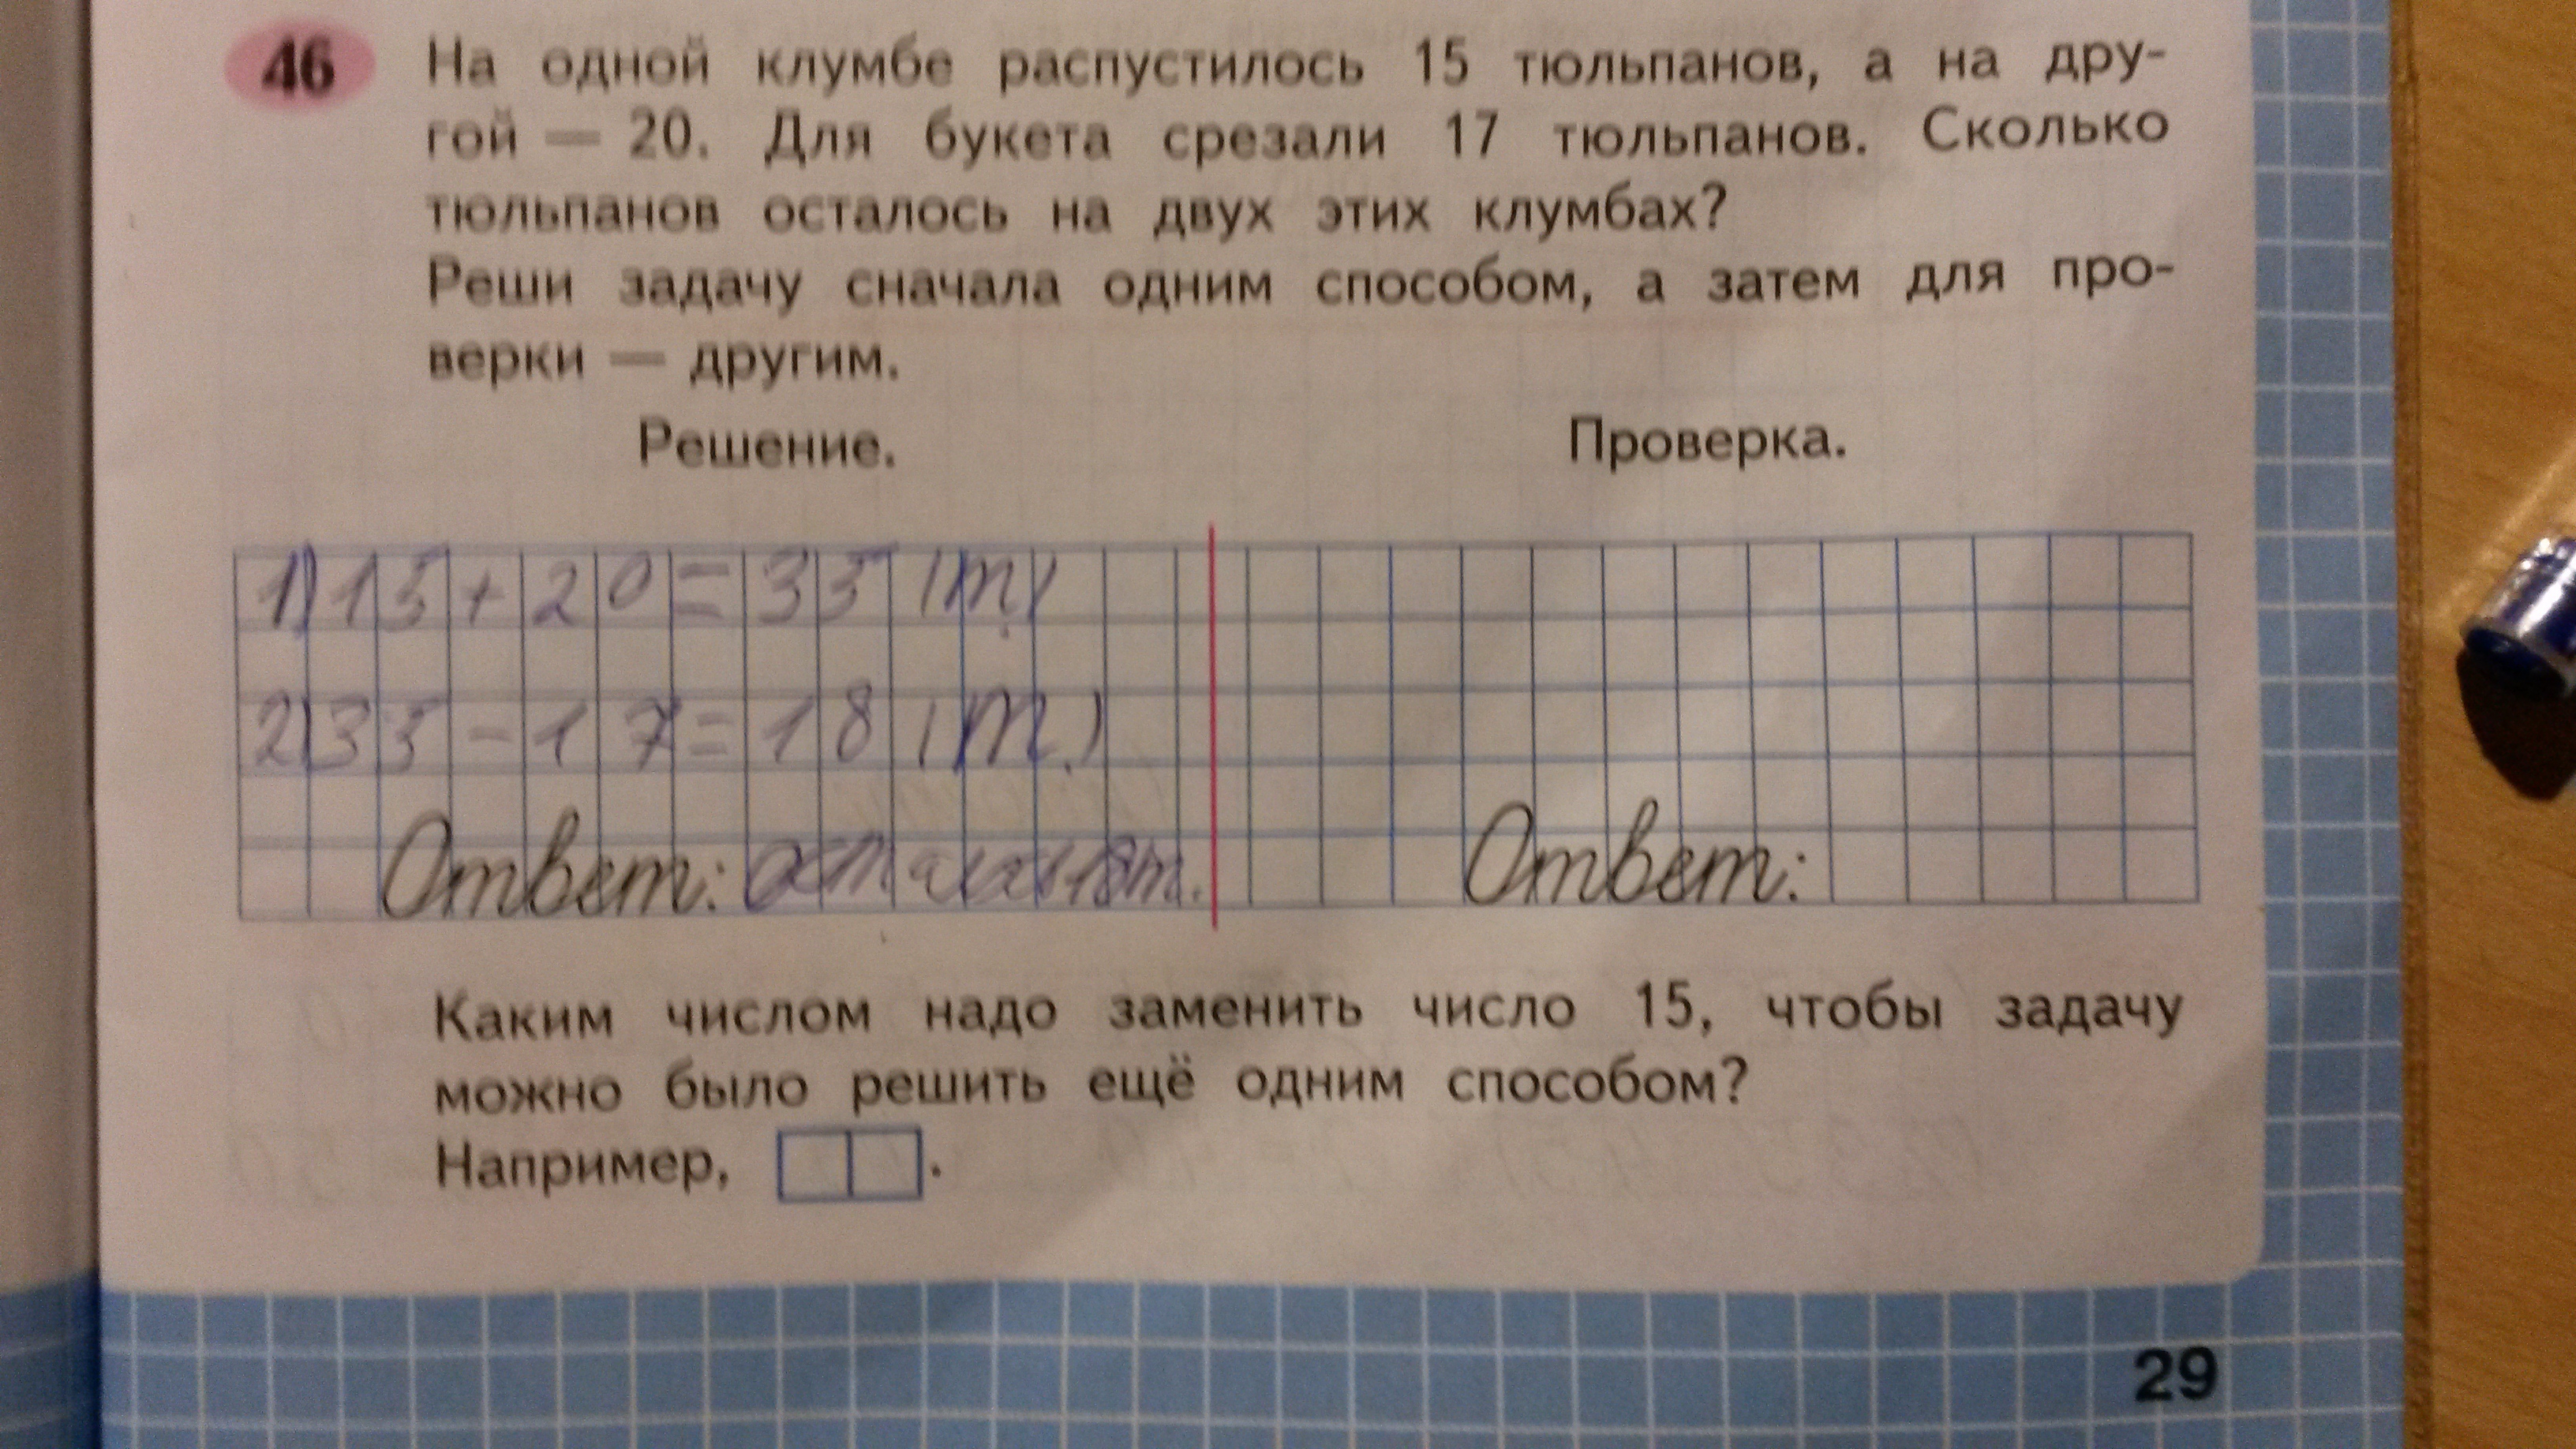 46 На одной клумбе распустилось 15 тюльпанов, а на дру-
гой — 20. Для букета срезали 17 тюльпанов. Сколько
тюльпанов осталось на двух этих клумбах?
Реши задачу сначала одним способом, а затем для про-
верки — другим.
Решение. Проверка.
1) 15 + 20 = 35 (т.)
2) 35 - 17 = 18 (т.)
Ответ: осталось 18 т. Ответ:
Каким числом надо заменить число 15, чтобы задачу
можно было решить ещё одним способом?
Например, .
29